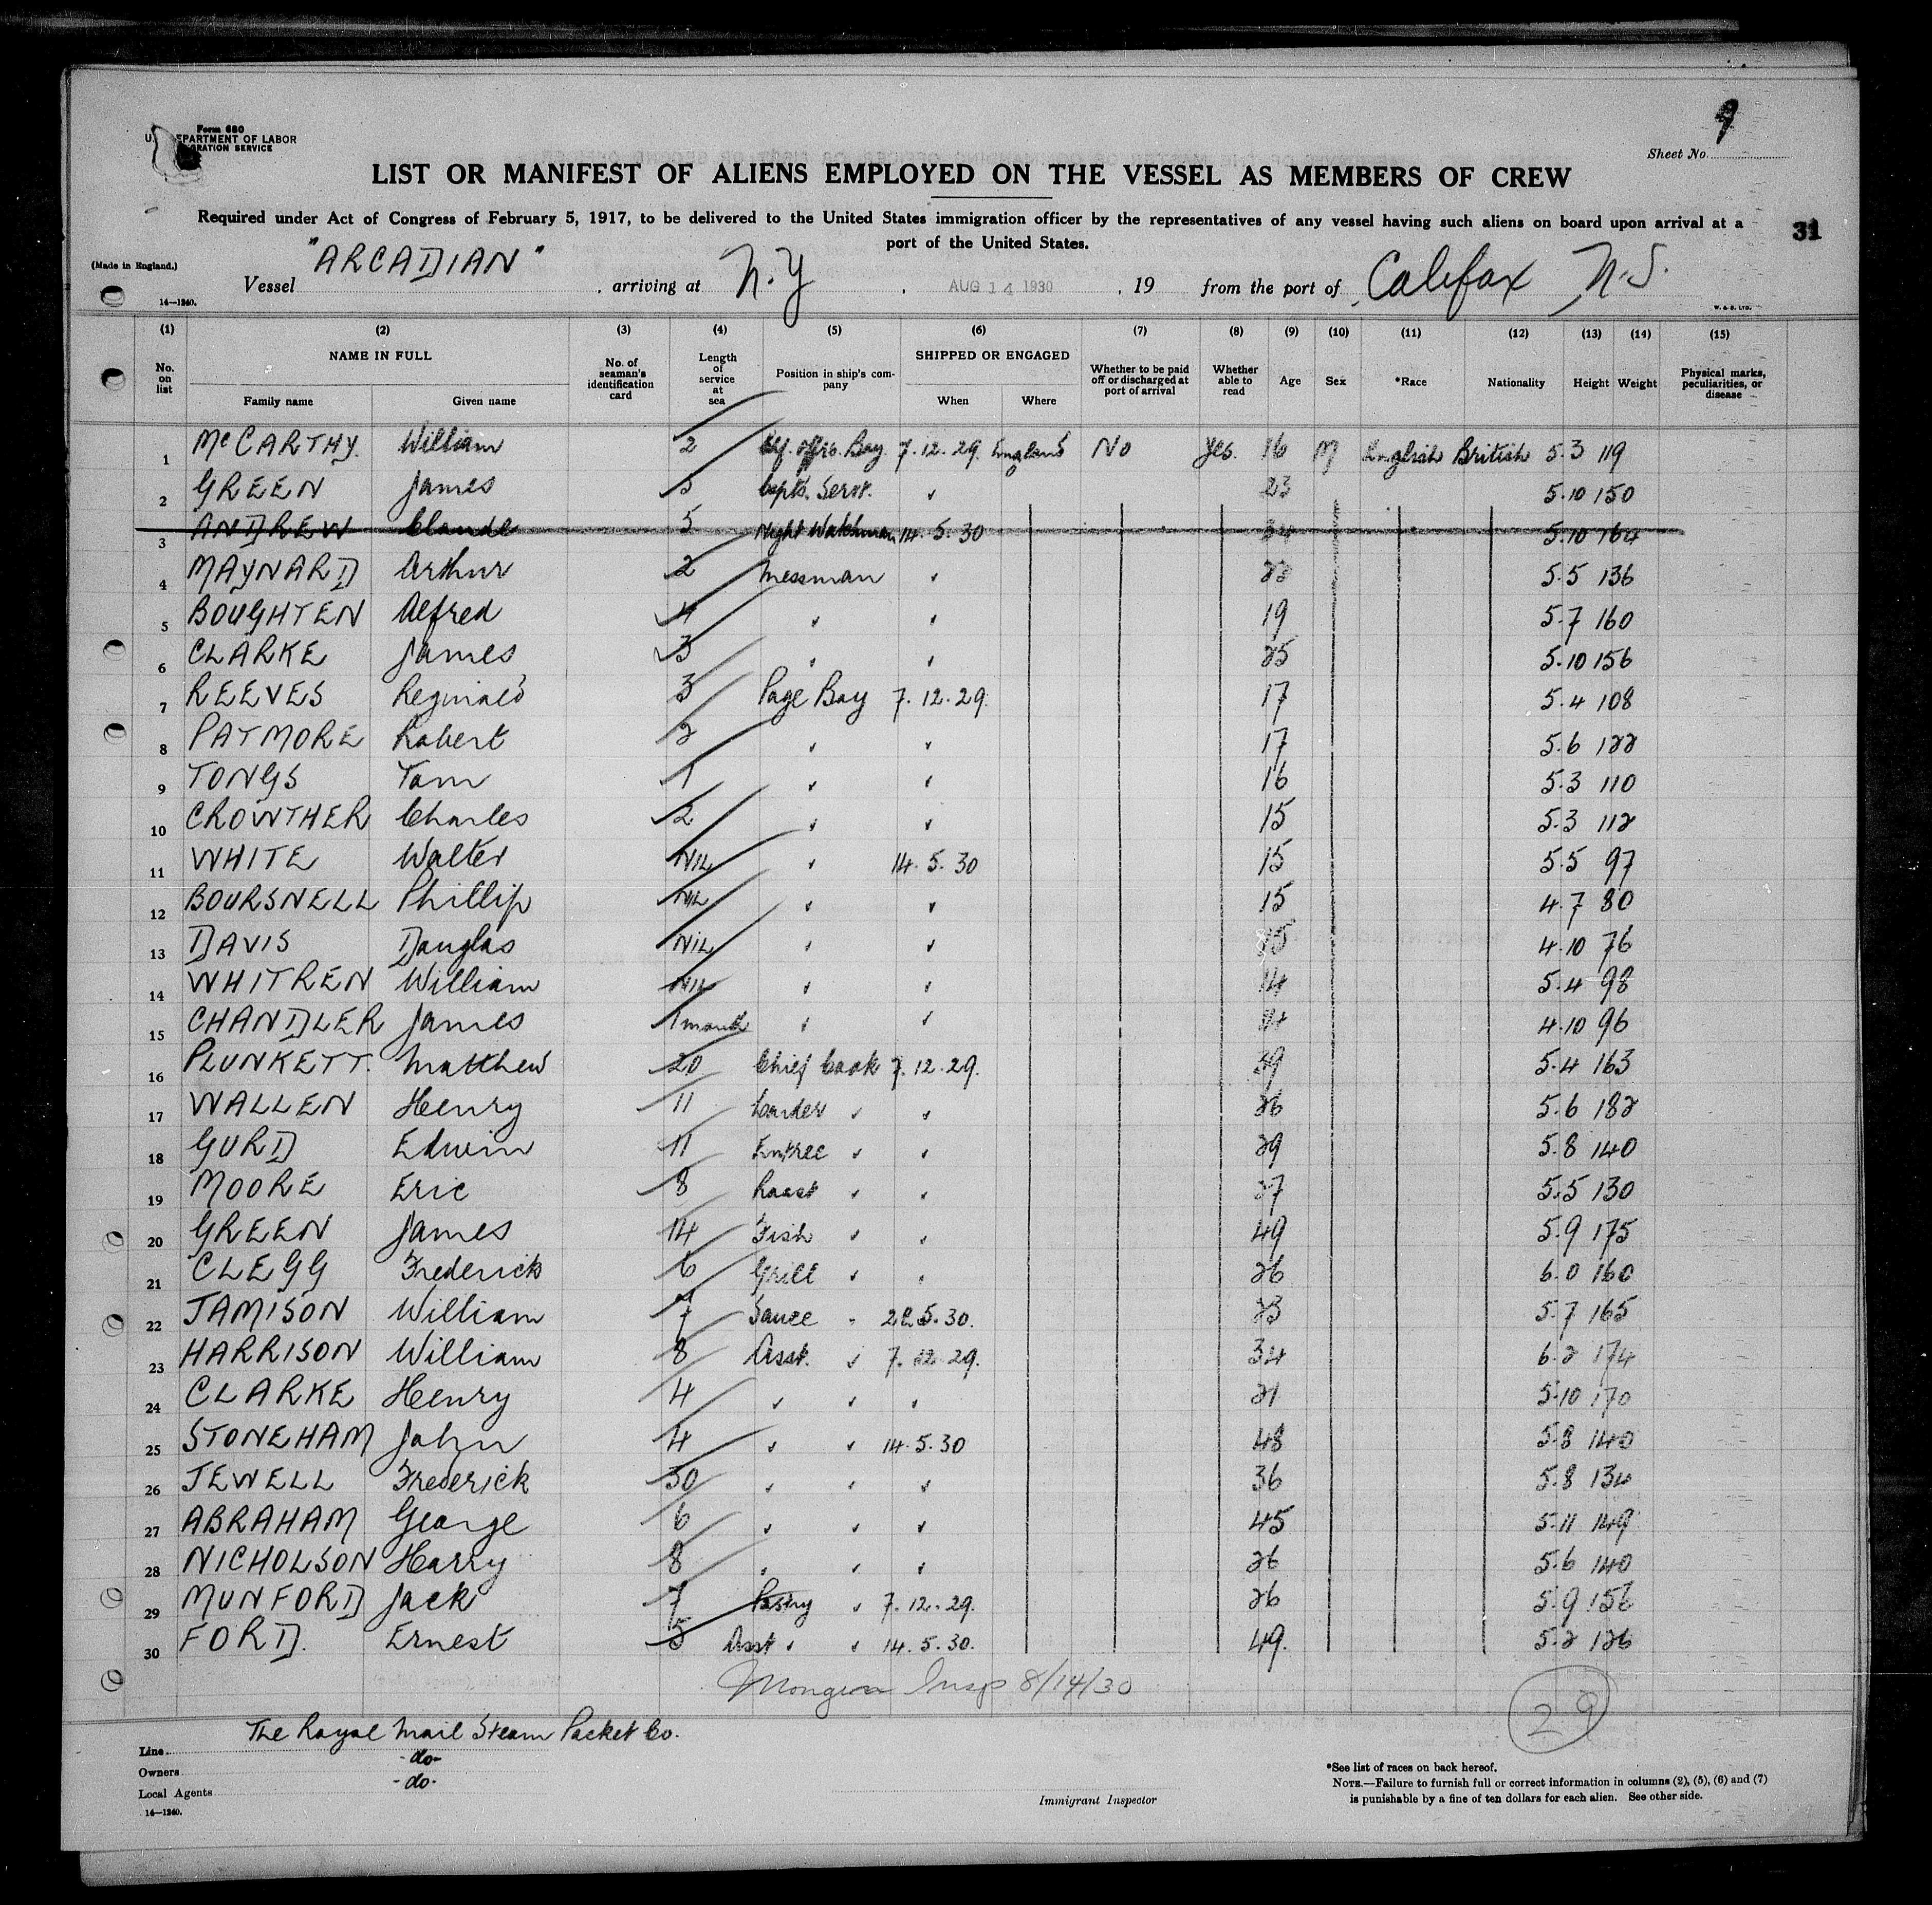 Form 680
U. DEPARTMENT OF LABOR
RATION SERVICE
9
Sheet No.
LIST OR MANIFEST OF ALIENS EMPLOYED ON THE VESSEL AS MEMBERS OF CREW
Required under Act of Congress of February 5, 1917, to be delivered to the United States immigration officer by the representatives of any vessel having such aliens on board upon arrival at a
port of the United States.
31
(Made in England.)
14—1240.
Vessel "ARCADIAN", arriving at N.Y, AUG 14 1930, 19 from the port of Califax N.S.
W. & S. LTD.
(1) (2) (3) (4) (5) (6) (7) (8) (9) (10) (11) (12) (13) (14) (15)
No. on list NAME IN FULL Family name Given name No. of seaman's identification card Length of service at sea Position in ship's company SHIPPED OR ENGAGED When Where Whether to be paid off or discharged at port of arrival Whether able to read Age Sex *Race Nationality Height Weight Physical marks, peculiarities, or disease
1 McCARTHY. William 2 Boy 7.12.29. England No yes. 16 M English British 5.3 119
2 GREEN James Capts. Servt. ✓ 23 5.10 150
3 ANDREW Claude 5 Night Watchman 14.5.30 34 5.10 164
4 MAYNARD Arthur 2 Messman ✓ 22 5.5 136
5 BOUGHTEN Alfred 4 ✓ ✓ 19 5.7 160
6 CLARKE James 3 ✓ ✓ 25 5.10 156
7 REEVES Reginald 3 Page Boy 7.12.29. 17 5.4 108
8 PATMORE Robert 2 ✓ ✓ 17 5.6 122
9 TONGS Tom 1 ✓ ✓ 16 5.3 110
10 CROWTHER Charles 2 ✓ ✓ 15 5.3 112
11 WHITE Walter NIL ✓ 14.5.30 15 5.5 97
12 BOURSNELL Phillip NIL ✓ ✓ 15 4.7 80
13 DAVIS Douglas NIL ✓ ✓ 15 4.10 76
14 WHITREN William NIL ✓ ✓ 14 5.4 98
15 CHANDLER James 1 month ✓ ✓ 4.10 96
16 PLUNKETT. Matthew 20 Chief Cook 7.12.29. 39 5.4 163
17 WALLEN Henry 11 Larder ✓ ✓ 26 5.6 182
18 GURD Edwin 11 Entree ✓ ✓ 29 5.8 140
19 MOORE Eric 8 Roast ✓ ✓ 27 5.5 130
20 GREEN James 14 Fish ✓ ✓ 49 5.9 175
21 CLEGG Frederick 6 Grill ✓ ✓ 26 6.0 160
22 JAMISON William 7 Sauce ✓ 5.30. 23 5.7 165
23 HARRISON William 8 Asst. ✓ 7.12.29. 34 6.2 174
24 CLARKE Henry 4 ✓ ✓ ✓ 21 5.10 170
25 STONEHAM John 4 ✓ ✓ 14.5.30 48 5.8 140
26 JEWELL Frederick 30 ✓ ✓ ✓ 36 5.8 134
27 ABRAHAM George 6 ✓ ✓ ✓ 45 5.11 149
28 NICHOLSON Harry 8 ✓ ✓ ✓ 26 5.6 140
29 MUNFORD Jack 7 Pastry ✓ 7.12.29. 26 5.9 156
30 FORD. Ernest 5 Asst ✓ ✓ 14.5.30. 49. 5.2 126
Insp 8/14/30
29
Line The Royal Mail Steam Packet Co.
Owners -do-
Local Agents -do-
14—1240.
Immigrant Inspector
*See list of races on back hereof.
NOTE.—Failure to furnish full or correct information in columns (2), (5), (6) and (7)
is punishable by a fine of ten dollars for each alien. See other side.